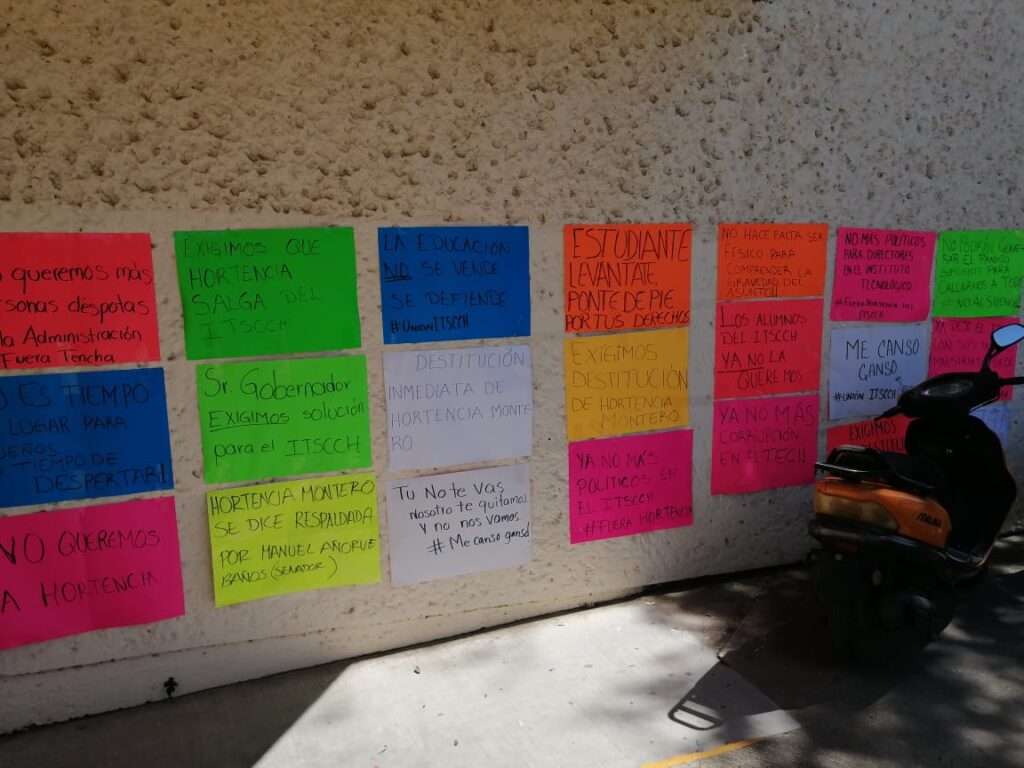 queremos más
personas despotas
la Administración
Fuera Tencha
ES TIEMPO
LUGAR PARA
TIEMPO DE
DESPERTAR!!
NO QUEREMOS
A HORTENCIA
EXIGIMOS QUE
HORTENCIA
SALGA DEL
ITSCCH
Sr Gobernador
EXIGIMOS solución
para el ITSCCH
HORTENCIA MONTERO
SE DICE RESPALDADA
POR MANUEL AÑORVE
BAÑOS (SENADOR)
LA EDUCACIÓN
NO SE VENDE
SE DEFIENDE
#UNIONITSCCH
DESTITUCIÓN
INMEDIATA DE
HORTENCIA MONTE
RO
Tu No te vas
Nosotro te quitamos
Y no nos vamos
# Me canso ganso
ESTUDIANTE
LEVANTATE,
PONTE DE PIE
POR TUS DERECHOS
EXIGIMOS
DESTITUCIÓN
DE HORTENCIA
MONTERO
YA NO MÁS
POLITICOS EN
EL ITSCCH
#FUERA HORTENCIA
NO HACE FALTA SER
FÍSICO PARA
COMPRENDER LA
GRAVEDAD DEL
ASUNTO!!
LOS ALUMNOS
DEL ITSCCH
YA NO LA
QUEREMOS
YA NO MÁS
CORRUPCIÓN
EN EL TEC!!
NO MAS POLITICOS
PARA DIRECTORES
EN EL INSTITUTO
TECNOLÓGICO
#FUERA HORTENCIA DEL
ITSCCH
ME CANSO
GANSO
#UNIÓN ITSCCH
EXIGIMOS
NO PODRÁN GENE
RAR EL PANICO
SUFICIENTE PARA
CALLARNOS A TODOS
#NO AL SILENCIO
YA DEJE EL
CON SUS
MAESTRIAS
ITALIKA